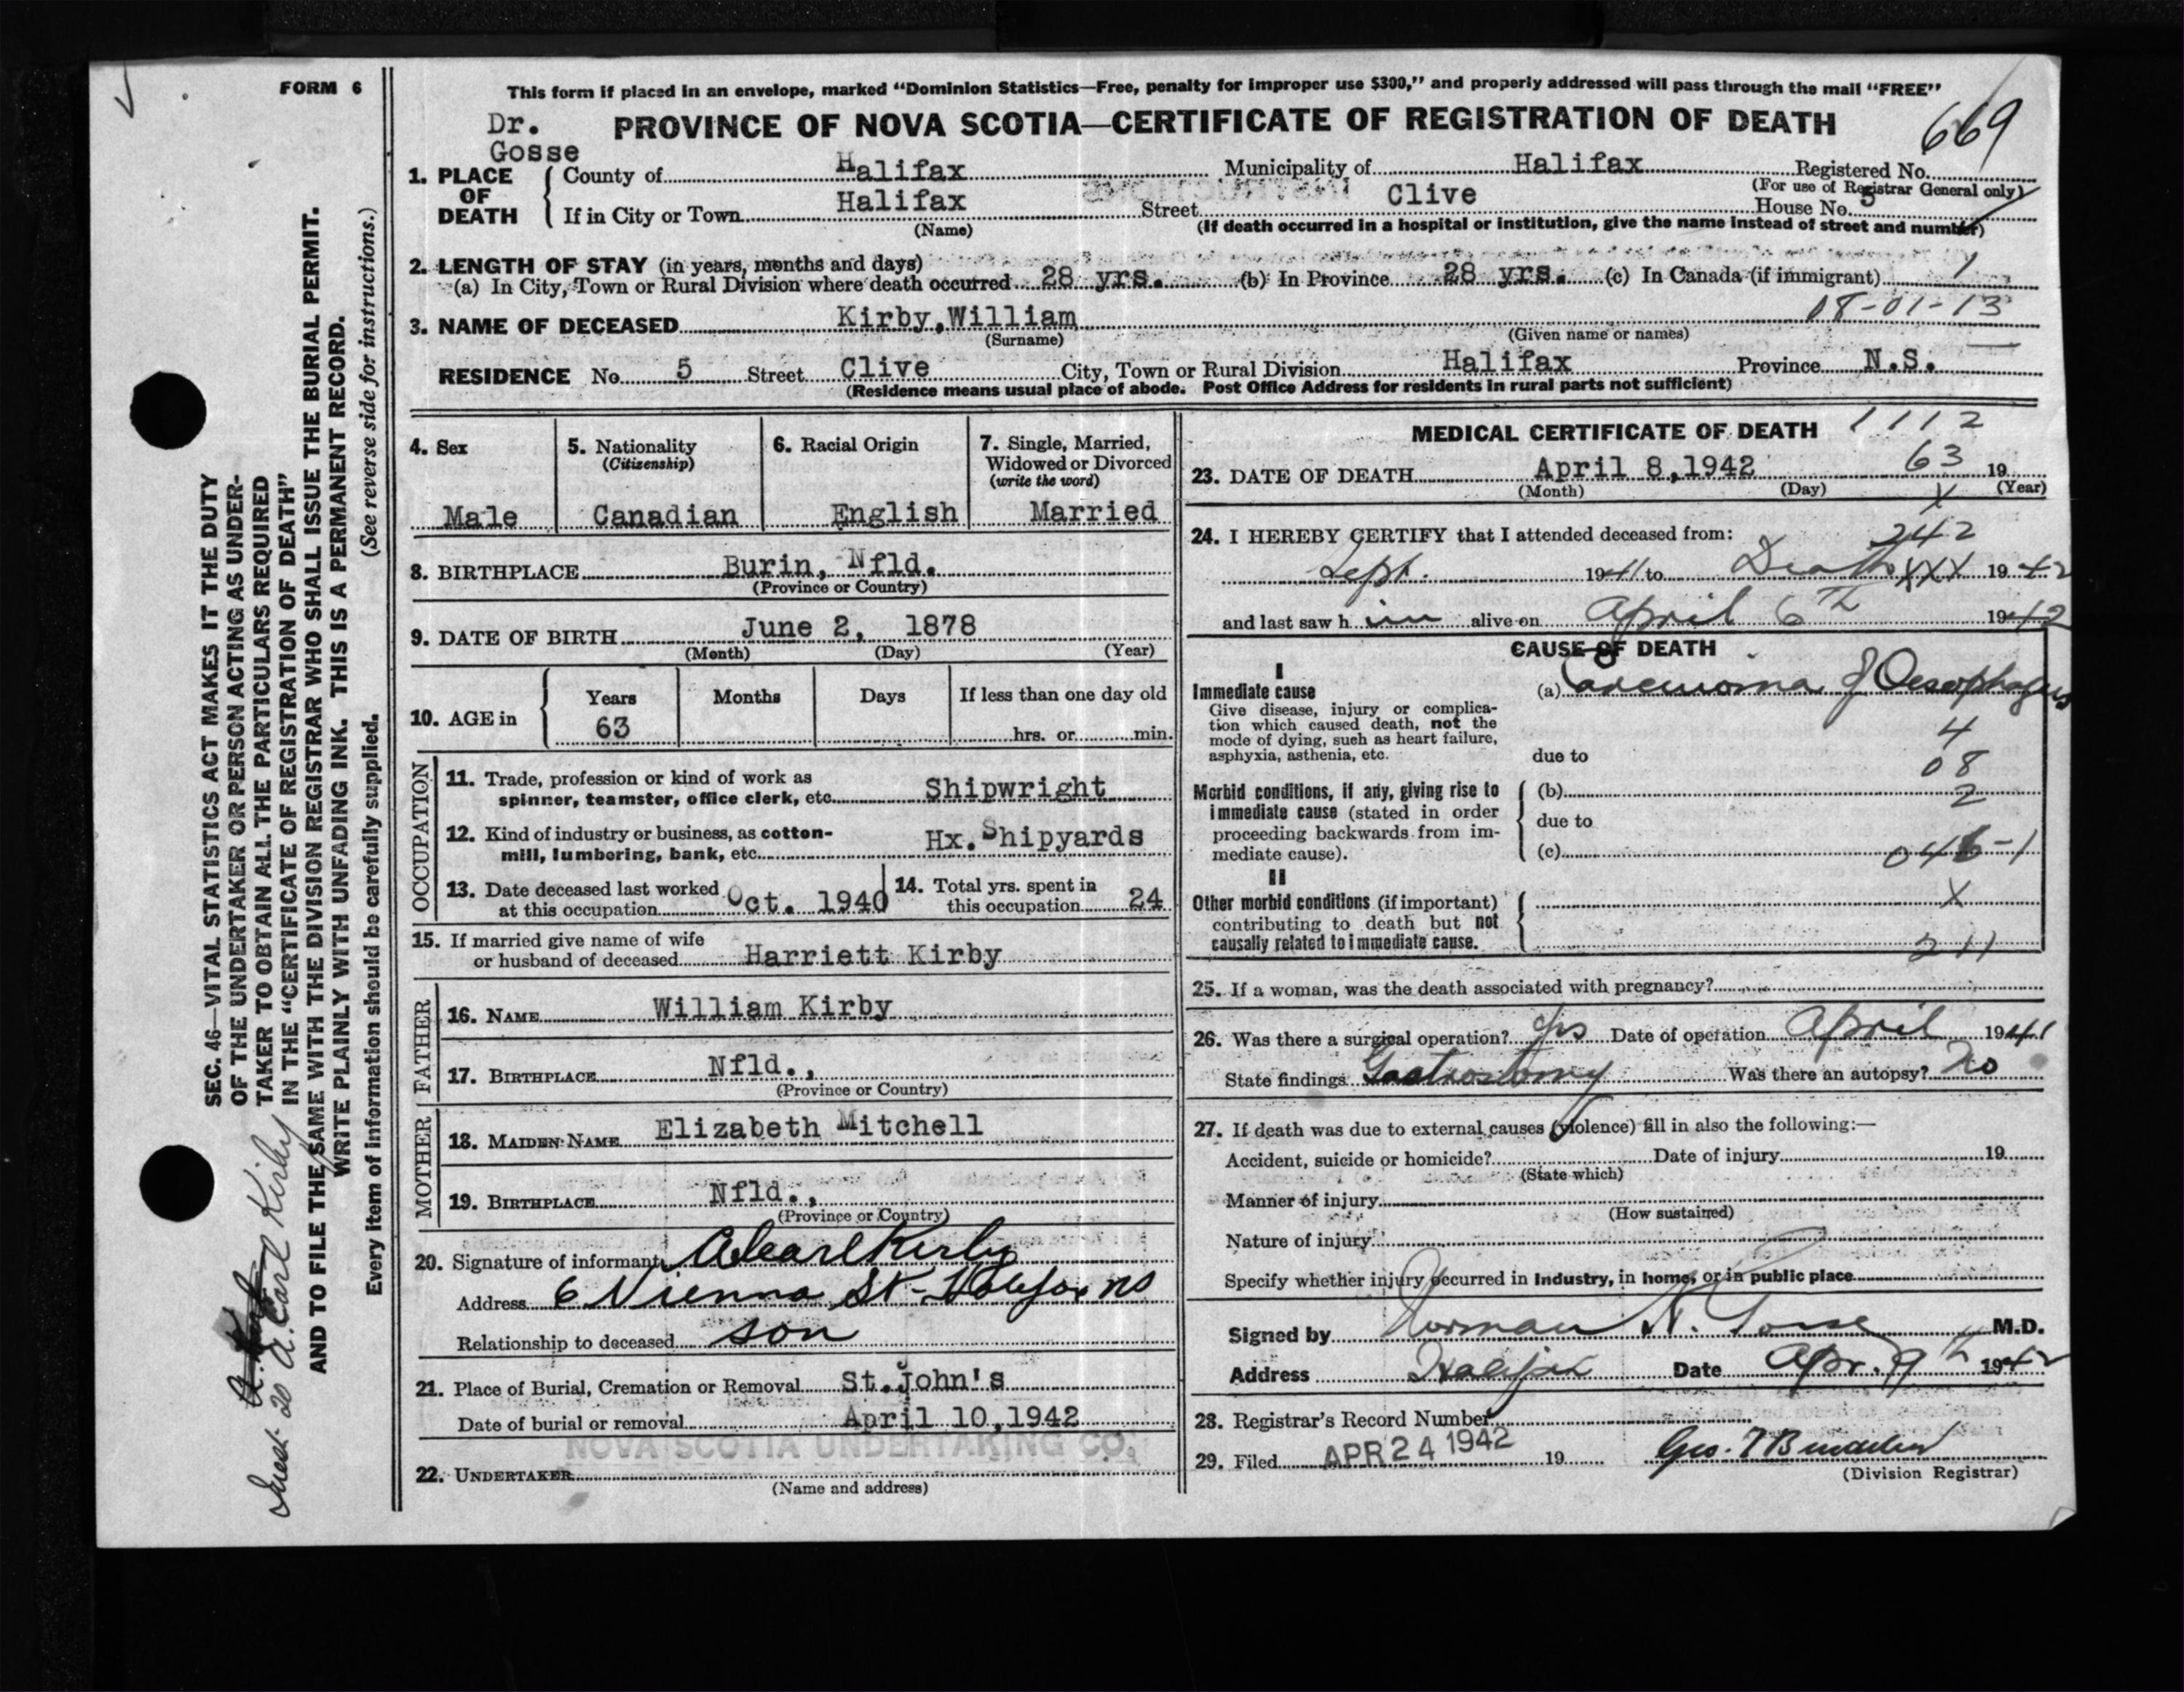 FORM 6
This form if placed in an envelope, marked “Dominion Statistics—Free, penalty for improper use $300,” and properly addressed will pass through the mail “FREE”
Dr. Gosse
PROVINCE OF NOVA SCOTIA—CERTIFICATE OF REGISTRATION OF DEATH
669
1. PLACE OF DEATH
County of Halifax Municipality of Halifax Registered No.
(For use of Registrar General only)
If in City or Town Halifax Street Clive House No. 5
(Name) (If death occurred in a hospital or institution, give the name instead of street and number)
2. LENGTH OF STAY (in years, months and days)
(a) In City, Town or Rural Division where death occurred 28 yrs. (b) In Province 28 yrs. (c) In Canada (if immigrant) 1
08-01-13
3. NAME OF DECEASED Kirby, William
(Surname) (Given name or names)
RESIDENCE No. 5 Street Clive City, Town or Rural Division Halifax Province N.S.
(Residence means usual place of abode. Post Office Address for residents in rural parts not sufficient)
4. Sex
Male
5. Nationality
(Citizenship)
Canadian
6. Racial Origin
English
7. Single, Married,
Widowed or Divorced
(write the word)
Married
8. BIRTHPLACE Burin, Nfld.
(Province or Country)
9. DATE OF BIRTH June 2, 1878
(Month) (Day) (Year)
10. AGE in
Years Months Days If less than one day old
63 hrs. or min.
OCCUPATION
11. Trade, profession or kind of work as
spinner, teamster, office clerk, etc. Shipwright
12. Kind of industry or business, as cotton-
mill, lumbering, bank, etc. Hx. Shipyards
13. Date deceased last worked
at this occupation Oct. 1940
14. Total yrs. spent in
this occupation 24
15. If married give name of wife
or husband of deceased Harriett Kirby
FATHER
16. NAME William Kirby
17. BIRTHPLACE Nfld.,
(Province or Country)
MOTHER
18. MAIDEN NAME Elizabeth Mitchell
19. BIRTHPLACE Nfld.,
(Province or Country)
20. Signature of informant A Carl Kirby
Address 6 Vienna St - Halifax NS
Relationship to deceased son
21. Place of Burial, Cremation or Removal St.John's
Date of burial or removal April 10,1942
NOVA SCOTIA UNDERTAKING CO.
22. UNDERTAKER
(Name and address)
MEDICAL CERTIFICATE OF DEATH 1112
63
23. DATE OF DEATH April 8,1942 19
(Month) (Day) (Year)
X
24. I HEREBY CERTIFY that I attended deceased from:
242
Sept. 1941 to Death XXX 1942
and last saw h im alive on April 6th 1942
CAUSE OF DEATH
I
Immediate cause
Give disease, injury or complica-
tion which caused death, not the
mode of dying, such as heart failure,
asphyxia, asthenia, etc.
(a) Carcinoma of Oesophagus
4
due to
08
Morbid conditions, if any, giving rise to
immediate cause (stated in order
proceeding backwards from im-
mediate cause).
(b) 2
due to
(c) 046-1
II
Other morbid conditions (if important)
contributing to death but not
causally related to immediate cause.
X
211
25. If a woman, was the death associated with pregnancy?
26. Was there a surgical operation? yes Date of operation April 1941
State findings Gastrostomy Was there an autopsy? No
27. If death was due to external causes (violence) fill in also the following:—
Accident, suicide or homicide? Date of injury 19
(State which)
Manner of injury
(How sustained)
Nature of injury
Specify whether injury occurred in industry, in home, or in public place
Signed by Norman H. Gosse M.D.
Address Halifax Date Apr. 9th 1942
28. Registrar's Record Number
29. Filed APR 24 1942 19
(Division Registrar)
SEC. 46—VITAL STATISTICS ACT MAKES IT THE DUTY
OF THE UNDERTAKER OR PERSON ACTING AS UNDER-
TAKER TO OBTAIN ALL THE PARTICULARS REQUIRED
IN THE “CERTIFICATE OF REGISTRATION OF DEATH”
AND TO FILE THE SAME WITH THE DIVISION REGISTRAR WHO SHALL ISSUE THE BURIAL PERMIT.
WRITE PLAINLY WITH UNFADING INK. THIS IS A PERMANENT RECORD.
Every item of information should be carefully supplied. (See reverse side for instructions.)
Quest 20 A. Carl Kirby